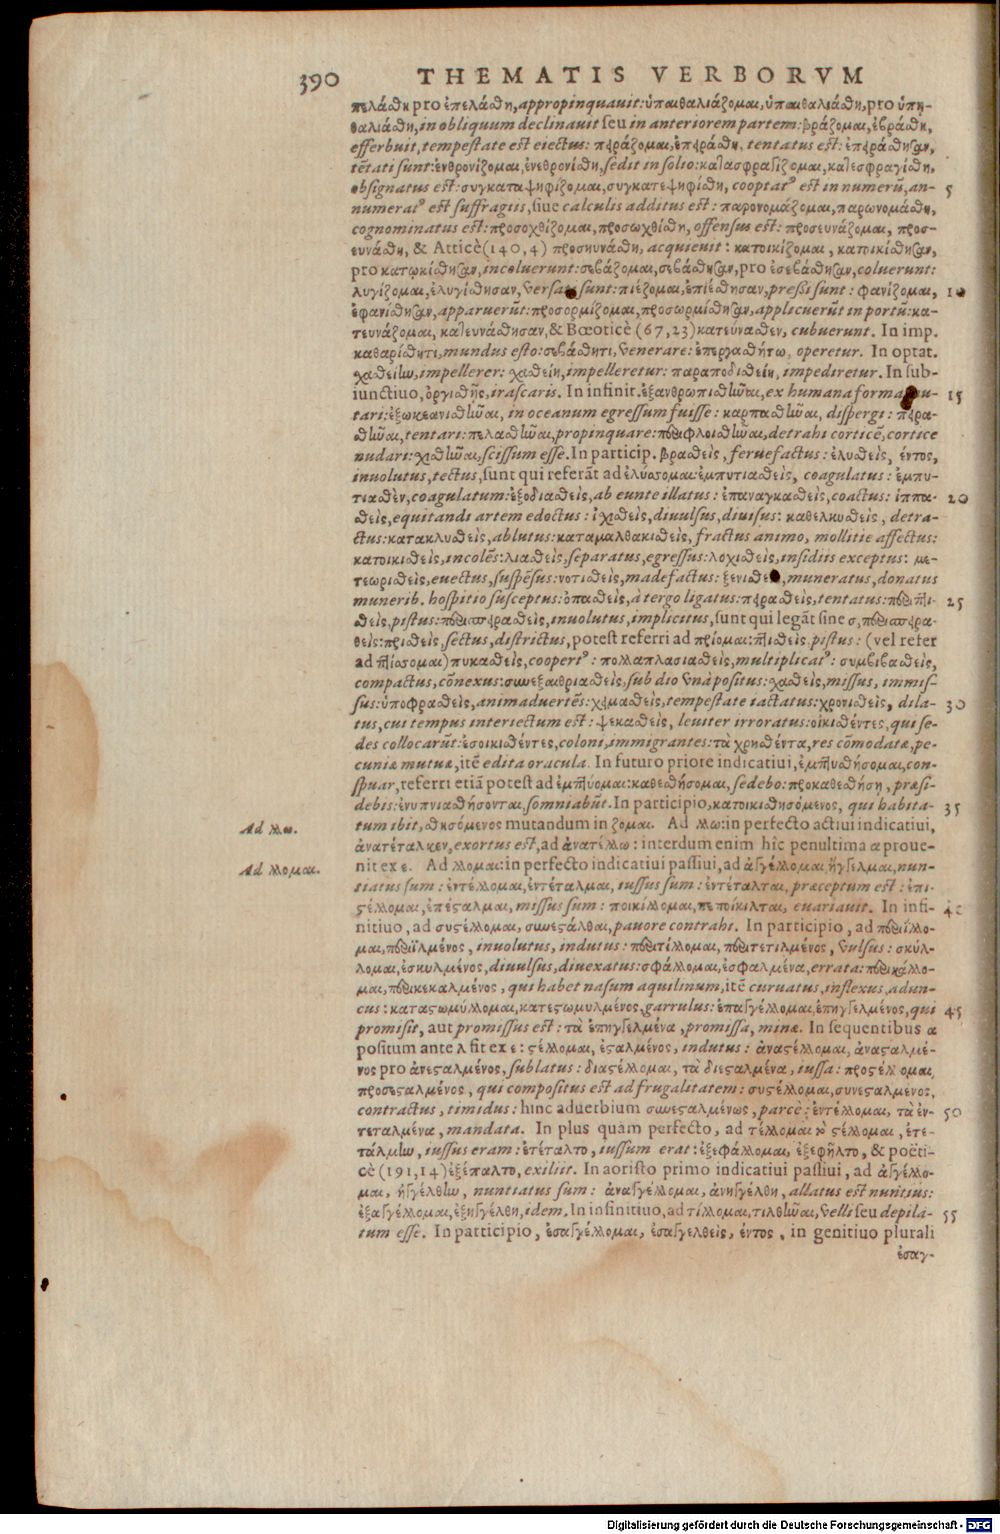 390 THEMATIS VERBORVM
πελάσθη pro ἐπελάσθη, appropinquauit: ὑπαιθαλιάζομαι, ὑπαιθαλιάσθη, pro ὑπη-
θαλιάσθη, in obliquum declinauit seu in anteriorem partem: βράζομαι, ἐβράσθη,
efferbuit, tempestate est eiectus: πειράζομαι, ἐπειράσθη, tentatus est: ἐπειράσθησαν,
tẽtati sunt: ἐνθρονίζομαι, ἐνεθρονίσθη, sedit in solio: κατασφραγίζομαι, κατεσφραγίσθη,
obsignatus est: συγκαταψηφίζομαι, συγκατεψηφίσθη, cooptatꝰ est in numerũ, an- 5
numeratꝰ est suffragiis, siue calculis additus est: παρονομάζομαι, παρωνομάσθη,
cognominatus est: προσοχθίζομαι, προσωχθίσθη, offensus est: προσευνάζομαι, προσ-
ευνάσθη, & Atticè (140,4) προσηυνάσθη, acquieuit: κατοικίζομαι, κατοικίσθησαν,
pro κατῳκίσθησαν, incoluerunt: σεβάζομαι, σεβάσθησαν, pro ἐσεβάσθησαν, coluerunt:
λυγίζομαι, ἐλυγίσθησαν, versati sunt: πιέζομαι, ἐπιέσθησαν, pressi sunt: φανίζομαι, 10
ἐφανίσθησαν, apparuerũt: προσορμίζομαι, προσωρμίσθησαν, applicuerũt in portũ: κα-
τευνάζομαι, κατευνάσθησαν, & Bœoticè (67,23) κατεύνασθεν, cubuerunt. In imp.
καθαρίσθητι, mundus esto: σεβάσθητι, venerare: ἐπεργασθήτω, operetur. In optat.
χασθείην, impellerer: χασθείη, impelleretur: παραποδισθείη, impediretur. In sub-
iunctiuo, ὀργισθῇς, irascaris. In infinit. ἐξανθρωπισθῆναι, ex humana forma mu- 15
tari: ἐξωκεανισθῆναι, in oceanum egressum fuisse: καρπασθῆναι, dispergi: πειρα-
σθῆναι, tentari: πελασθῆναι, propinquare: περιφλοισθῆναι, detrahi corticẽ, cortice
nudari: χισθῆναι, scissum esse. In particip. βρασθεὶς, feruefactus: ἐλυσθεὶς, έντος,
inuolutus, tectus, sunt qui referãt ad ἐλύσομαι: ἐμπυτιασθεὶς, coagulatus: ἐμπυ-
τιασθὲν, coagulatum: ἐξοδιασθεὶς, ab eunte illatus: ἐπαναγκασθεὶς, coactus: ἱππα- 20
σθεὶς, equitandi artem edoctus: ἰχισθεὶς, diuulsus, diuisus: καθελκυσθεὶς, detra-
ctus: κατακλυσθεὶς, ablutus: καταμαλθακισθεὶς, fractus animo, mollitie affectus:
κατοικισθεὶς, incolẽs: λιασθεὶς, separatus, egressus: λοχισθεὶς, insidiis exceptus: με-
τεωρισθεὶς, euectus, suspẽsus: νοτισθεὶς, madefactus: ξενισθεὶς, muneratus, donatus
munerib. hospitio susceptus: ὀπασθεὶς, à tergo ligatus: πειρασθεὶς, tentatus: περιπι- 25
σθεὶς, pistus: περισπειρασθεὶς, inuolutus, implicitus, sunt qui legãt sine σ, περισπειρα-
θείς: πρισθεὶς, sectus, districtus, potest referri ad πρίομαι: πτισθεὶς, pistus: (vel refer
ad πτίσομαι) πυκασθεὶς, coopertꝰ: πολλαπλασιασθεὶς, multiplicatꝰ: συμβιβασθεὶς,
compactus, cõnexus: συνεξαιθριασθεὶς, sub dio vnà positus: χασθεὶς, missus, immis-
sus: ὑποφρασθεὶς, animaduertẽs: χειμασθεὶς, tempestate iactatus: χρονισθεὶς, dila- 30
tus, cui tempus interiectum est: ψεκασθεὶς, leuiter irroratus: οἰκισθέντες, qui se-
des collocarũt: ἐσοικισθέντες, coloni, immigrantes: τὰ χρησθέντα, res cõmodatæ, pe-
cuniæ mutuæ, itẽ edita oracula. In futuro priore indicatiui, ἐμπτυσθήσομαι, con-
spuar, referri etiã potest ad ἐμπτύομαι: καθεσθήσομαι, sedebo: προκαθεσθήσῃ, præsi-
debis: ἐνυπνιασθήσονται, somniabũt. In participio, κατοικισθησόμενος, qui habita- 35
tum ibit, σθησόμενος mutandum in ζομαι. Ad λλω: in perfecto actiui indicatiui,
Ad λλω.
ἀνατέταλκεν, exortus est, ad ἀνατέλλω: interdum enim hîc penultima α proue-
nit ex ε. Ad λλομαι: in perfecto indicatiui passiui, ad ἀγγέλλομαι, ἤγγελμαι, nun-
Ad λλομαι.
tiatus sum: ἐντέλλομαι, ἐντέταλμαι, iussus sum: ἐντέταλται, præceptum est: ἐπι-
στέλλομαι, ἐπέσταλμαι, missus sum: ποικίλλομαι, πεποίκιλται, euariauit. In infi- 40
nitiuo, ad συστέλλομαι, συνεστάλθαι, pauore contrahi. In participio, ad περιίλλο-
μαι, περιϊλμένος, inuolutus, indutus: περιτίλλομαι, περιτετιλμένος, vulsus: σκύλ-
λομαι, ἐσκυλμένος, diuulsus, diuexatus: σφάλλομαι, ἐσφαλμένα, errata: περικάλλο-
μαι, περικεκαλμένος, qui habet nasum aquilinum, itẽ curuatus, inflexus, adun-
cus: καταστωμύλλομαι, κατεστωμυλμένος, garrulus: ἐπαγγέλλομαι, ἐπηγγελμένος, qui 45
promisit, aut promissus est: τὰ ἐπηγγελμένα, promissa, minæ. In sequentibus α
positum ante λ fit ex ε: στέλλομαι, ἐσταλμένος, indutus: ἀναστέλλομαι, ἀνασταλμέ-
νος pro ἀνεσταλμένος, sublatus: διαστέλλομαι, τὰ διεσταλμένα, iussa: προστέλλομαι,
προσεσταλμένος, qui compositus est ad frugalitatem: συστέλλομαι, συνεσταλμένος,
contractus, timidus: hinc aduerbium συνεσταλμένως, parcè: ἐντέλλομαι, τὰ ἐν- 50
τεταλμένα, mandata. In plus quàm perfecto, ad τέλλομαι & στέλλομαι, ἐτε-
τάλμην, iussus eram: ἐτέταλτο, iussum erat: ἐξεφάλλομαι, ἐξεφῆλτο, & poëti-
cè (191,14) ἐξέπαλτο, exiliit. In aoristo primo indicatiui passiui, ad ἀγγέλλο-
μαι, ἠγγέλθην, nuntiatus sum: ἀναγγέλλομαι, ἀνηγγέλθη, allatus est nuntius:
ἐξαγγέλλομαι, ἐξηγγέλθη, idem. In infinitiuo, ad τίλλομαι, τιλθῆναι, velli seu depila- 55
tum esse. In participio, ἐσαγγέλλομαι, ἐσαγγελθεὶς, έντος, in genitiuo plurali
ἐσαγ-
Digitalisierung gefördert durch die Deutsche Forschungsgemeinschaft - DFG